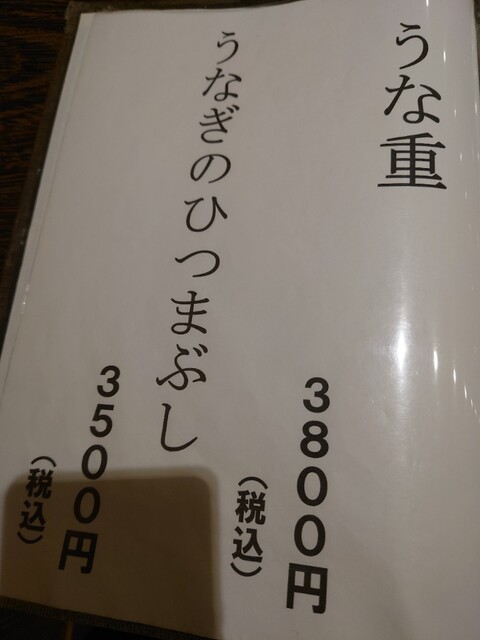 うな重
3800円
（税込）
うなぎのひつまぶし
3500円
（税込）